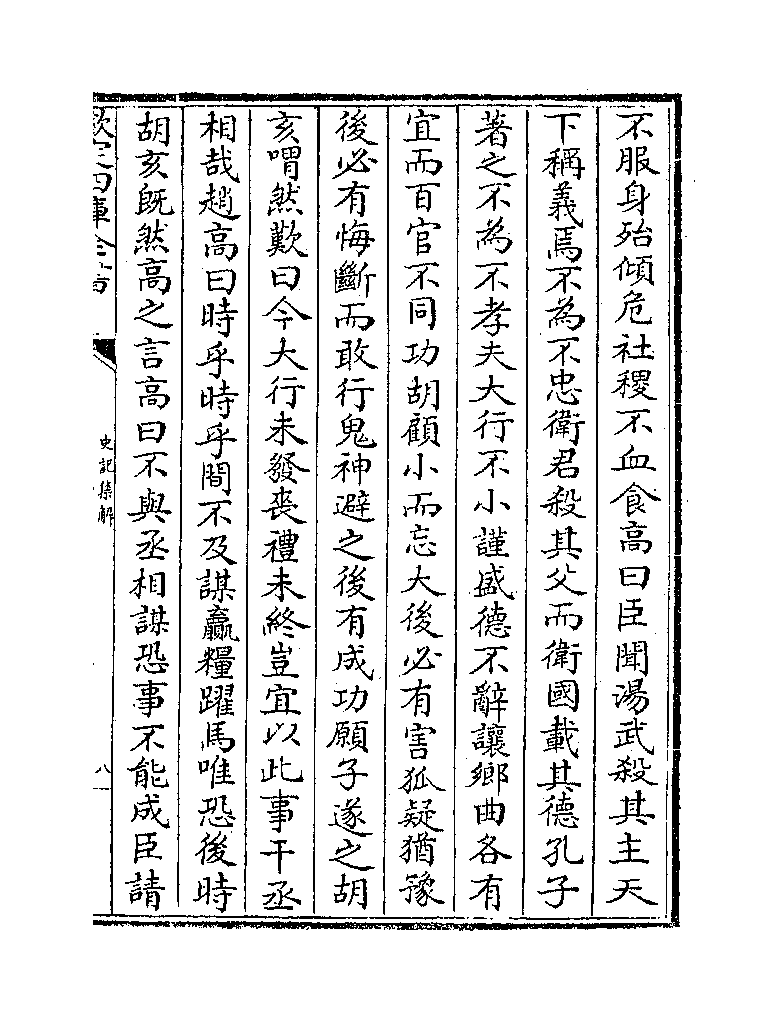 不服身殆傾危社稷不血食高曰臣聞湯武殺其主天
下稱義焉不為不忠衛君殺其父而衛國載其德孔子
著之不為不孝夫大行不小謹盛德不辭讓鄉曲各有
宜而百官不同功胡顧小而忘大後必有害狐疑猶豫
後必有悔斷而敢行鬼神避之後有成功願子遂之胡
亥喟然歎曰今大行未發喪禮未終豈宜以此事干丞
相哉趙高曰時乎時乎間不及謀贏糧躍馬唯恐後時
胡亥既然高之言高曰不與丞相謀恐事不能成臣請
欽定四庫全書
史記集解
八